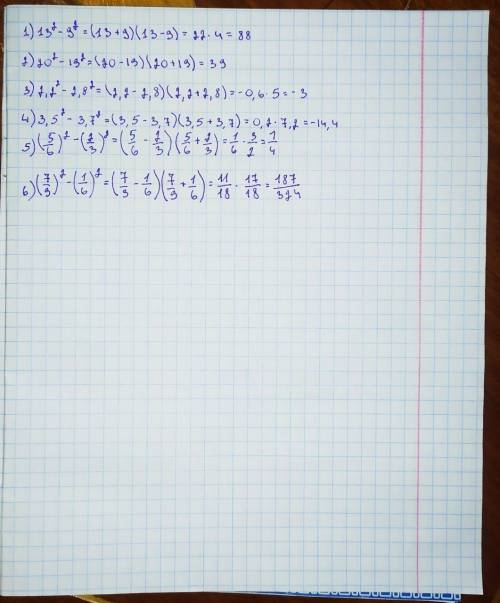 1) 13² - 9² = (13 + 9)(13 - 9) = 22 · 4 = 88
2) 20² - 19² = (20 - 19)(20 + 19) = 39
3) 2,2² - 2,8² = (2,2 - 2,8)(2,2 + 2,8) = -0,6 · 5 = -3
4) 3,5² - 3,7² = (3,5 - 3,7)(3,5 + 3,7) = 0,2 · 7,2 = -14,4
5) (5/6)² - (2/3)² = (5/6 - 2/3)(5/6 + 2/3) = 1/6 · 3/2 = 1/4
6) (7/3)² - (1/6)² = (7/3 - 1/6)(7/3 + 1/6) = 11/18 · 17/18 = 187/324